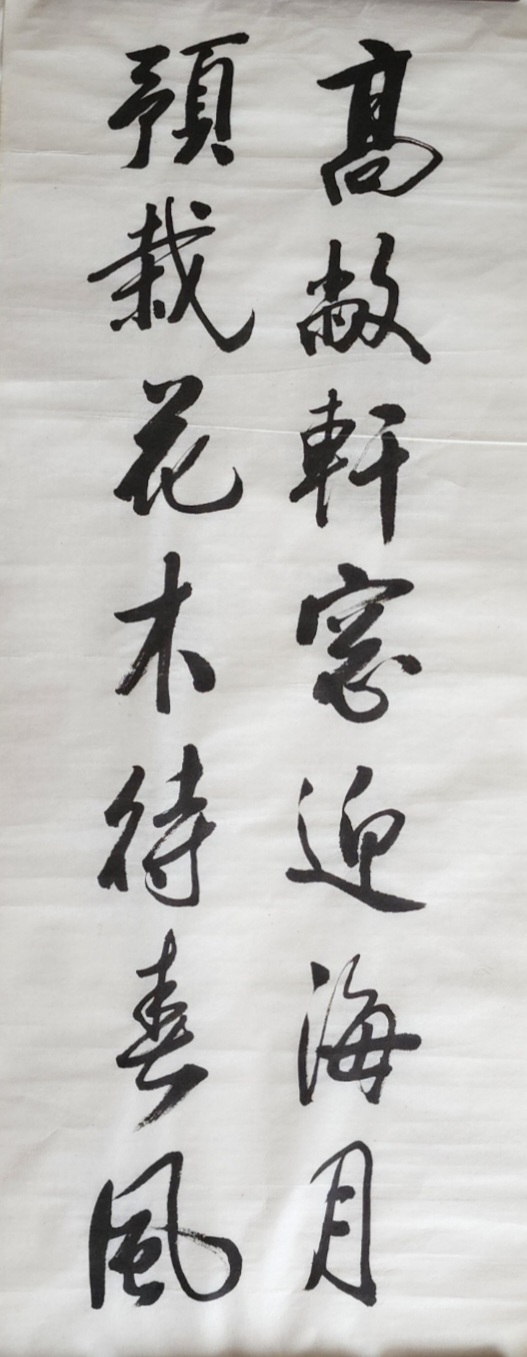 高敞軒窓迎海月
預栽花木待春風